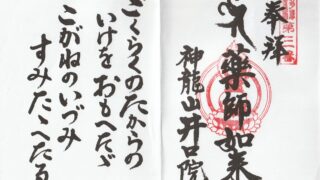 奉拝
第三番
薬師如来
神龍山井口院
ごくらくのたからの
いけをおもへたゞ
こがねのいづみ
すみたゝへたる